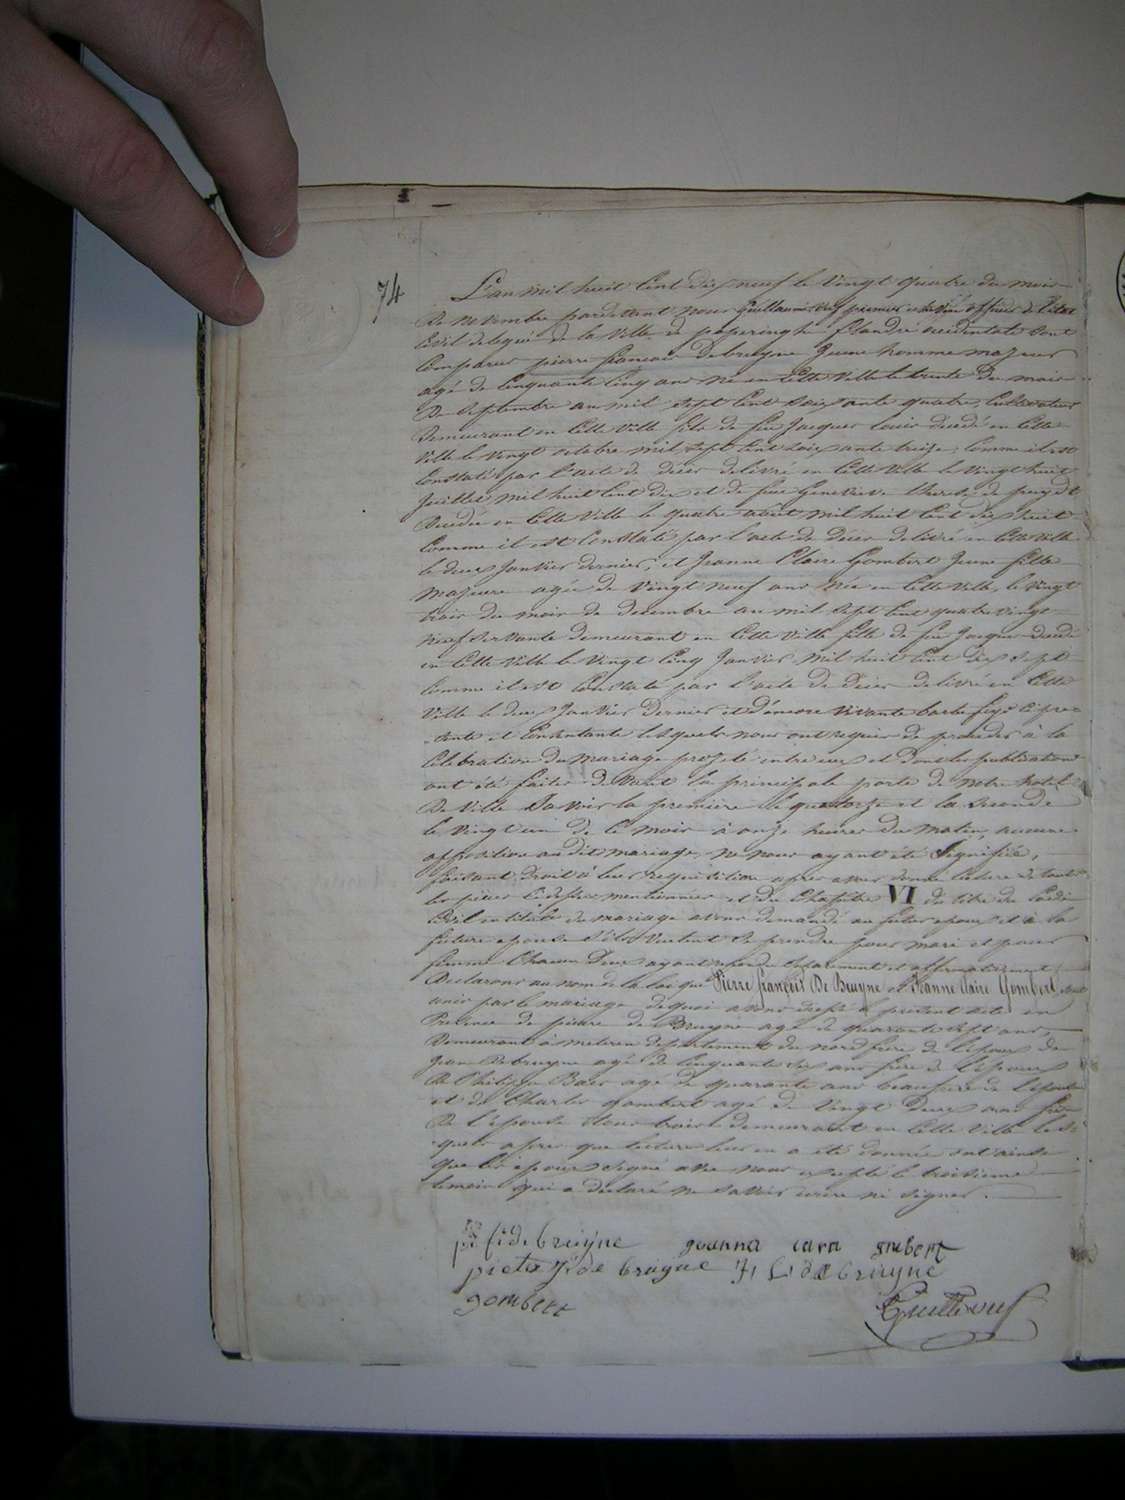 74
L'an mil huit Cent dix neuf le Vingt quatre du mois
De novembre pardevant nous Guillaume premier officier de l'état
Civil de la Ville de poperinghe flandre occidentale Sont
Comparus pierre francois debruyne Jeune homme majeur
agé de Cinquante Cinq ans né en Cette Ville le trente du mois
De Septembre an mil Sept Cent Soixante quatre, Cultivateur
Demeurant en Cette Ville fils de feu Jacques Louis décédé en Cette
Ville le Vingt octobre mil Sept Cent Soixante treize, Comme il est
Constaté par l'acte de Deces delivré en Cette Ville le Vingt huit
Juillet mil huit Cent dix et de feue Genevieve therese de puydt
Decedée en Cette Ville le quatre août mil huit Cent dix huit
Comme il est Constaté par l'acte de Deces delivré en Cette Ville
le deux Janvier dernier; et Jeanne Claire Gombert Jeune fille
majeure agée de Vingt neuf ans née en Cette Ville, le Vingt
trois du mois de decembre an mil Sept Cent quatre Vingt
neuf Servante demeurant en Cette Ville fille de feu Jacques décédé
en Cette Ville le Vingt Cinq Janvier mil huit Cent dix Sept
Comme il est Constaté par l'acte de Deces delivré en Cette
Ville le deux Janvier Dernier et d'encore Vivante barbe Ci pre-
-sente et Consentante lesquels nous ont requis de proceder à la
Célébration du mariage projeté entre eux et dont les publications
ont été faites Devant la principale porte de notre hotel
De Ville Savoir la première le quatorze et la Seconde
le Vingt un de Ce mois à onze heures Du Matin, aucune
opposition audit mariage, ne nous ayant été Signifiée,
faisant droit à leur requisition apres avoir donné lecture de toutes
les pieces Cidessus mentionnées et du Chapitre VI du titre du Code
Civil intitulé du mariage avons demandé au futur epoux et à la
future epouse S'ils Veulent Se prendre pour mari et pour
femme Chacun Deux ayant repondu Separement et affirmativement
Declarons au nom de la loi que Pierre françois De Bruyne et Jeanne Claire Gombert, sont
unis par le mariage de quoi avons dressé le présent acte en
Presence de pierre de Bruyne agé de quarante Sept ans,
Demeurant à meteren departement du nord frere de l'epoux de
Jean Debruyne agé de Cinquante Six ans frere de l'epoux
De Philippe Baes agé de quarante ans beaufrere de l'epouse
et de Charles gombert agé de Vingt Deux ans frere
De l'épouse tous trois demeurant en Cette Ville les-
quels apres que lecture leur en a été donnée ont ainsi
que les epoux Signé avec nous excepté le troisieme
temoin qui a déclaré ne Savoir ecrire ni Signer.
p: f: debruijne goanna cara gombert
pieter J: de bruyne J: L: debruijne
gombert